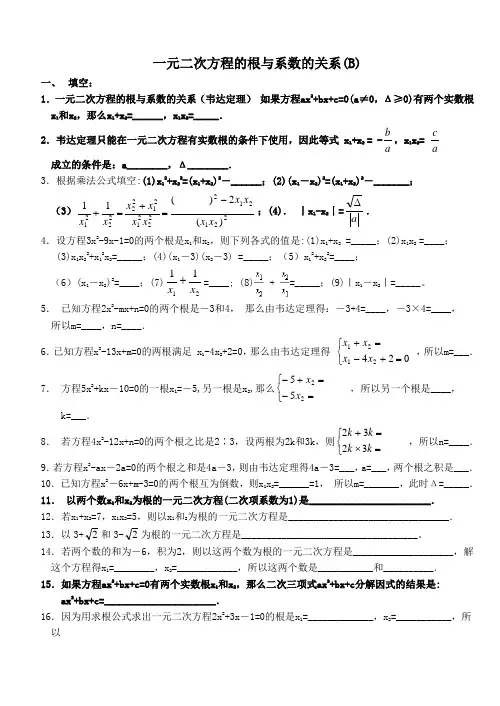 一元二次方程的根与系数的关系(B)
一、 填空:
1．一元二次方程的根与系数的关系（韦达定理） 如果方程ax²+bx+c=0(a≠0，Δ≥0)有两个实数根
x₁和x₂，那么x₁+x₂=______，x₁x₂=_____.
2．韦达定理只能在一元二次方程有实数根的条件下使用，因此等式 x₁+x₂ = -b/a，x₁x₂= c/a
成立的条件是：a________，Δ_______.
3．根据乘法公式填空:(1)x₁²+x₂²=(x₁+x₂)²－______；(2)(x₁－x₂)²=(x₁+x₂)²－_______；
(3) 1/x₁² + 1/x₂² = (x₂²+x₁²)/(x₁²x₂²) = (( )²－2x₁x₂)/(x₁x₂)²；(4)．｜x₁-x₂｜=√Δ/a.
4．设方程3x²-9x-1=0的两个根是x₁和x₂，则下列各式的值是:(1)x₁+x₂ =_____；(2)x₁x₂ =____；
(3)x₁x₂²+x₁²x₂=_____；(4)(x₁－3)(x₂－3) =_____；（5）x₁²+x₂²=____；
（6）(x₁－x₂)²=____；(7) 1/x₁ + 1/x₂ =____；(8) x₁/x₂ + x₂/x₁=_____；(9)｜x₁－x₂｜=_____。
5． 已知方程2x²-mx+n=0的两个根是－3和4， 那么由韦达定理得：-3+4=____，－3×4=____，
所以m=____，n=____.
6．已知方程x²-13x+m=0的两根满足 x₁-4x₂+2=0，那么由韦达定理得 { x₁+x₂= x₁－4x₂+2=0 ，所以m=___.
7． 方程5x²+kx－10=0的一根x₁=-5,另一根是x₂,那么{ －5+x₂= －5x₂= ，所以另一个根是____，
k=___.
8． 若方程4x²-12x+n=0的两个根之比是2∶3，设两根为2k和3k，则{ 2k+3k= 2k×3k= ，所以n=____.
9．若方程x²-ax－2a=0的两个根之和是4a－3，则由韦达定理得4a－3=___，a=___，两个根之积是___.
10．已知方程x²－6x+m-3=0的两个根互为倒数，则x₁x₂=______=1， 所以m=_______，此时Δ=_____.
11． 以两个数x₁和x₂为根的一元二次方程(二次项系数为1)是________________________.
12．若x₁+x₂=7，x₁x₂=5，则以x₁和₂为根的一元二次方程是________________________________.
13．以 3+√2 和 3-√2 为根的一元二次方程是___________________________________.
14．若两个数的和为－6，积为2，则以这两个数为根的一元二次方程是____________________，解
这个方程得x₁=________，x₂=____________，所以这两个数是___________和__________.
15．如果方程ax²+bx+c=0有两个实数根x₁和x₂，那么二次三项式ax²+bx+c分解因式的结果是:
ax²+bx+c=______________________.
16．因为用求根公式求出一元二次方程2x²+3x－1=0的根是x₁=_____________，x₂=___________，所
以